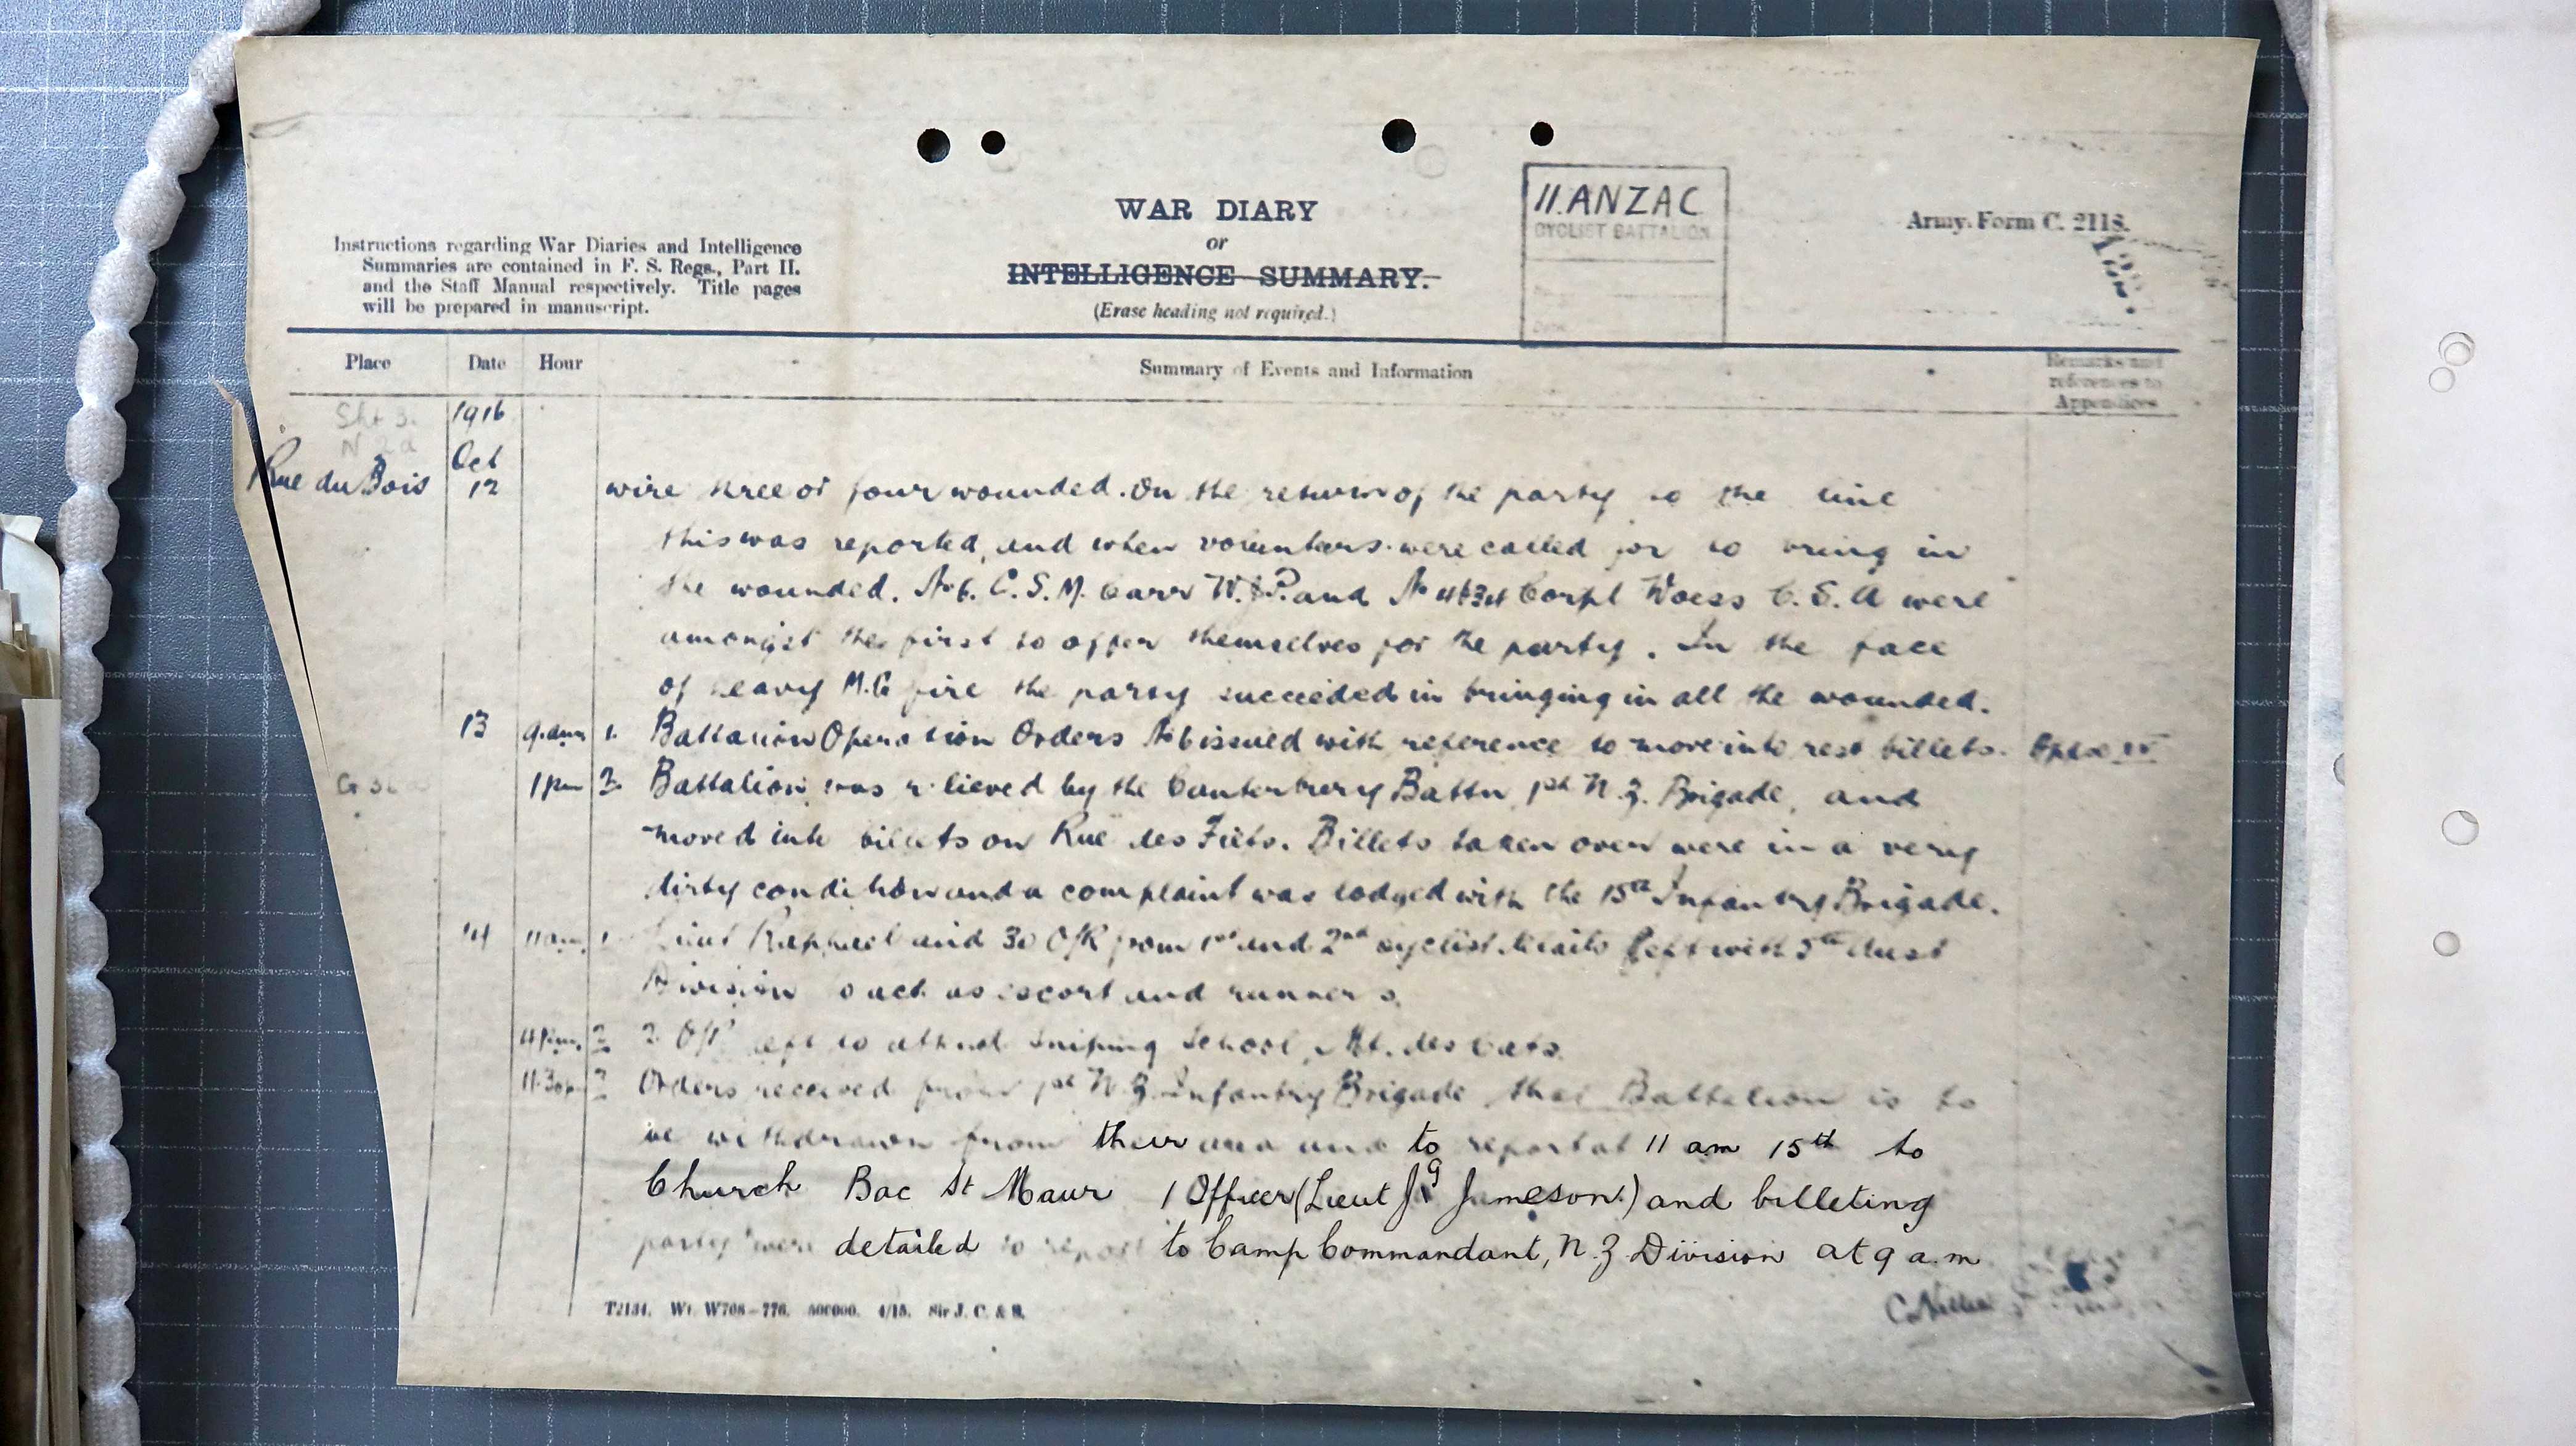 WAR DIARY
or
INTELLIGENCE SUMMARY.
(Erase heading not required.)
Instructions regarding War Diaries and Intelligence
Summaries are contained in F. S. Regs., Part II.
and the Staff Manual respectively. Title pages
will be prepared in manuscript.
II.ANZAC
CYCLIST BATTALION
Date
Army Form C. 2118.
Place Date Hour Summary of Events and Information Remarks and
references to
Appendices
1916
Oct
Rue du Bois 12 wire three or four wounded. On the return of the party to the line
this was reported, and when volunteers were called for to bring in
the wounded. No 6. C.S.M. Carr W. P. and No Corpl C. S. A were
amongst the first to offer themselves for the party. In the face
of heavy M.G fire the party succeeded in bringing in all the wounded.
13 9.am 1. Battalion Operation Orders No 6 issued with reference to move into rest billets.
1 pm 2. Battalion was relieved by the Canterbury Battn 1st N.Z. Brigade, and
moved into billets on Rue des Fiefs. Billets taken over were in a very
dirty condition and a complaint was lodged with the 15th Infantry Brigade.
14 11 am 1. Lieut Raphael and 30 O/R from 1st and 2nd cyclist left with 5th Aust
Division to act as escort and runners.
4 pm 2 2 O/R left to attend Sniping School, Mt. des Cats.
11.30p 3 Orders received from 1st N.Z Infantry Brigade that Battalion is to
be withdrawn from their area and to report at 11 am 15th to
Church Bac St Maur 1 Officer (Lieut J.G Jameson.) and billeting
party were detailed to report to Camp Commandant, N.Z Division at 9 a.m
T2134. Wt. W708—776. 500000. 4/15. Sir J. C. & S.